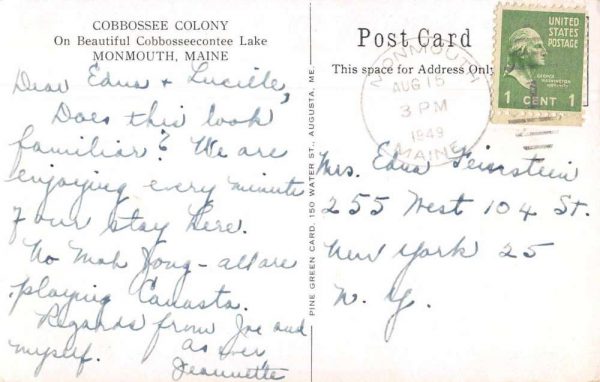 COBBOSSEE COLONY
On Beautiful Cobbosseecontee Lake
MONMOUTH, MAINE
Dear Edna & Lucille,
Does this look
familiar? We are
enjoying every minute
of our stay here.
No Mah Jong - all are
playing Canasta.
Regards from Joe and
myself. As ever
Jeannette
PINE GREEN CARD, 150 WATER ST., AUGUSTA, ME.
Post Card
This space for Address Only
MONMOUTH
AUG 15
3 PM
1949
MAINE
UNITED
STATES
POSTAGE
GEORGE
WASHINGTON
1 CENT 1
Mrs. Edna Feinstein
255 West 104 St.
New York 25
N. Y.